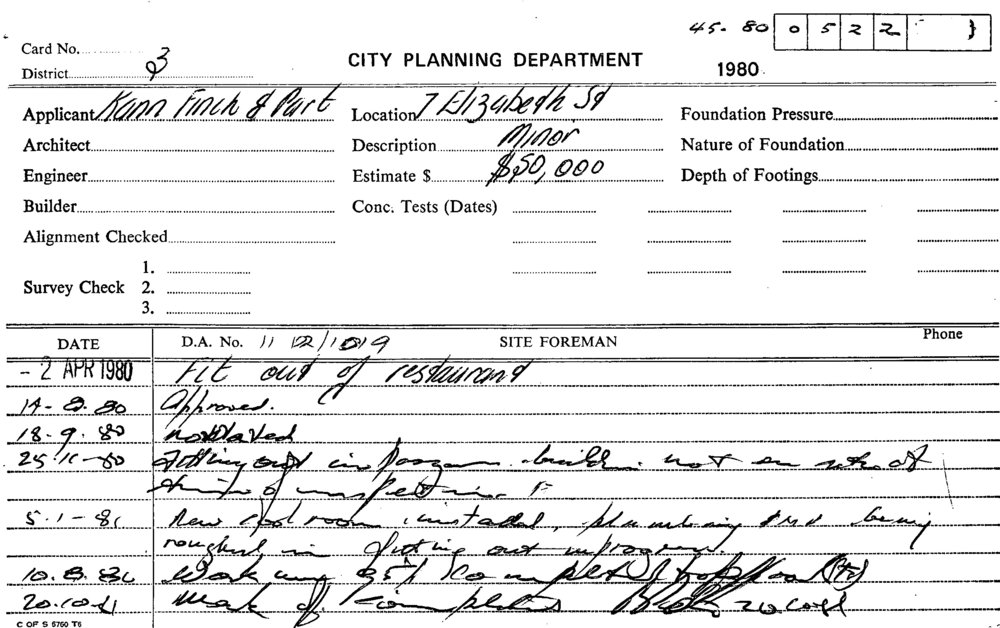 45. 80 0 5 2 2 }
Card No.
District 3
CITY PLANNING DEPARTMENT
1980
Applicant Kann Finch & Part Location 7 Elizabeth St Foundation Pressure
Architect Description Minor Nature of Foundation
Engineer Estimate $ $50,000 Depth of Footings
Builder Conc. Tests (Dates)
Alignment Checked
1.
Survey Check 2.
3.
DATE D.A. No. 11 SITE FOREMAN Phone
- 2 APR 1980 Fit out of restaurant
14-8.80 Approved.
18.9.80
25-11-80 Fitting out in not on site at
time of inspection.
5.1-81 New cool room installed, plumbing being
roughed in fitting out in progress.
10.8.81 Work 95%
20.10-81 Work
C OF S 5760 T6